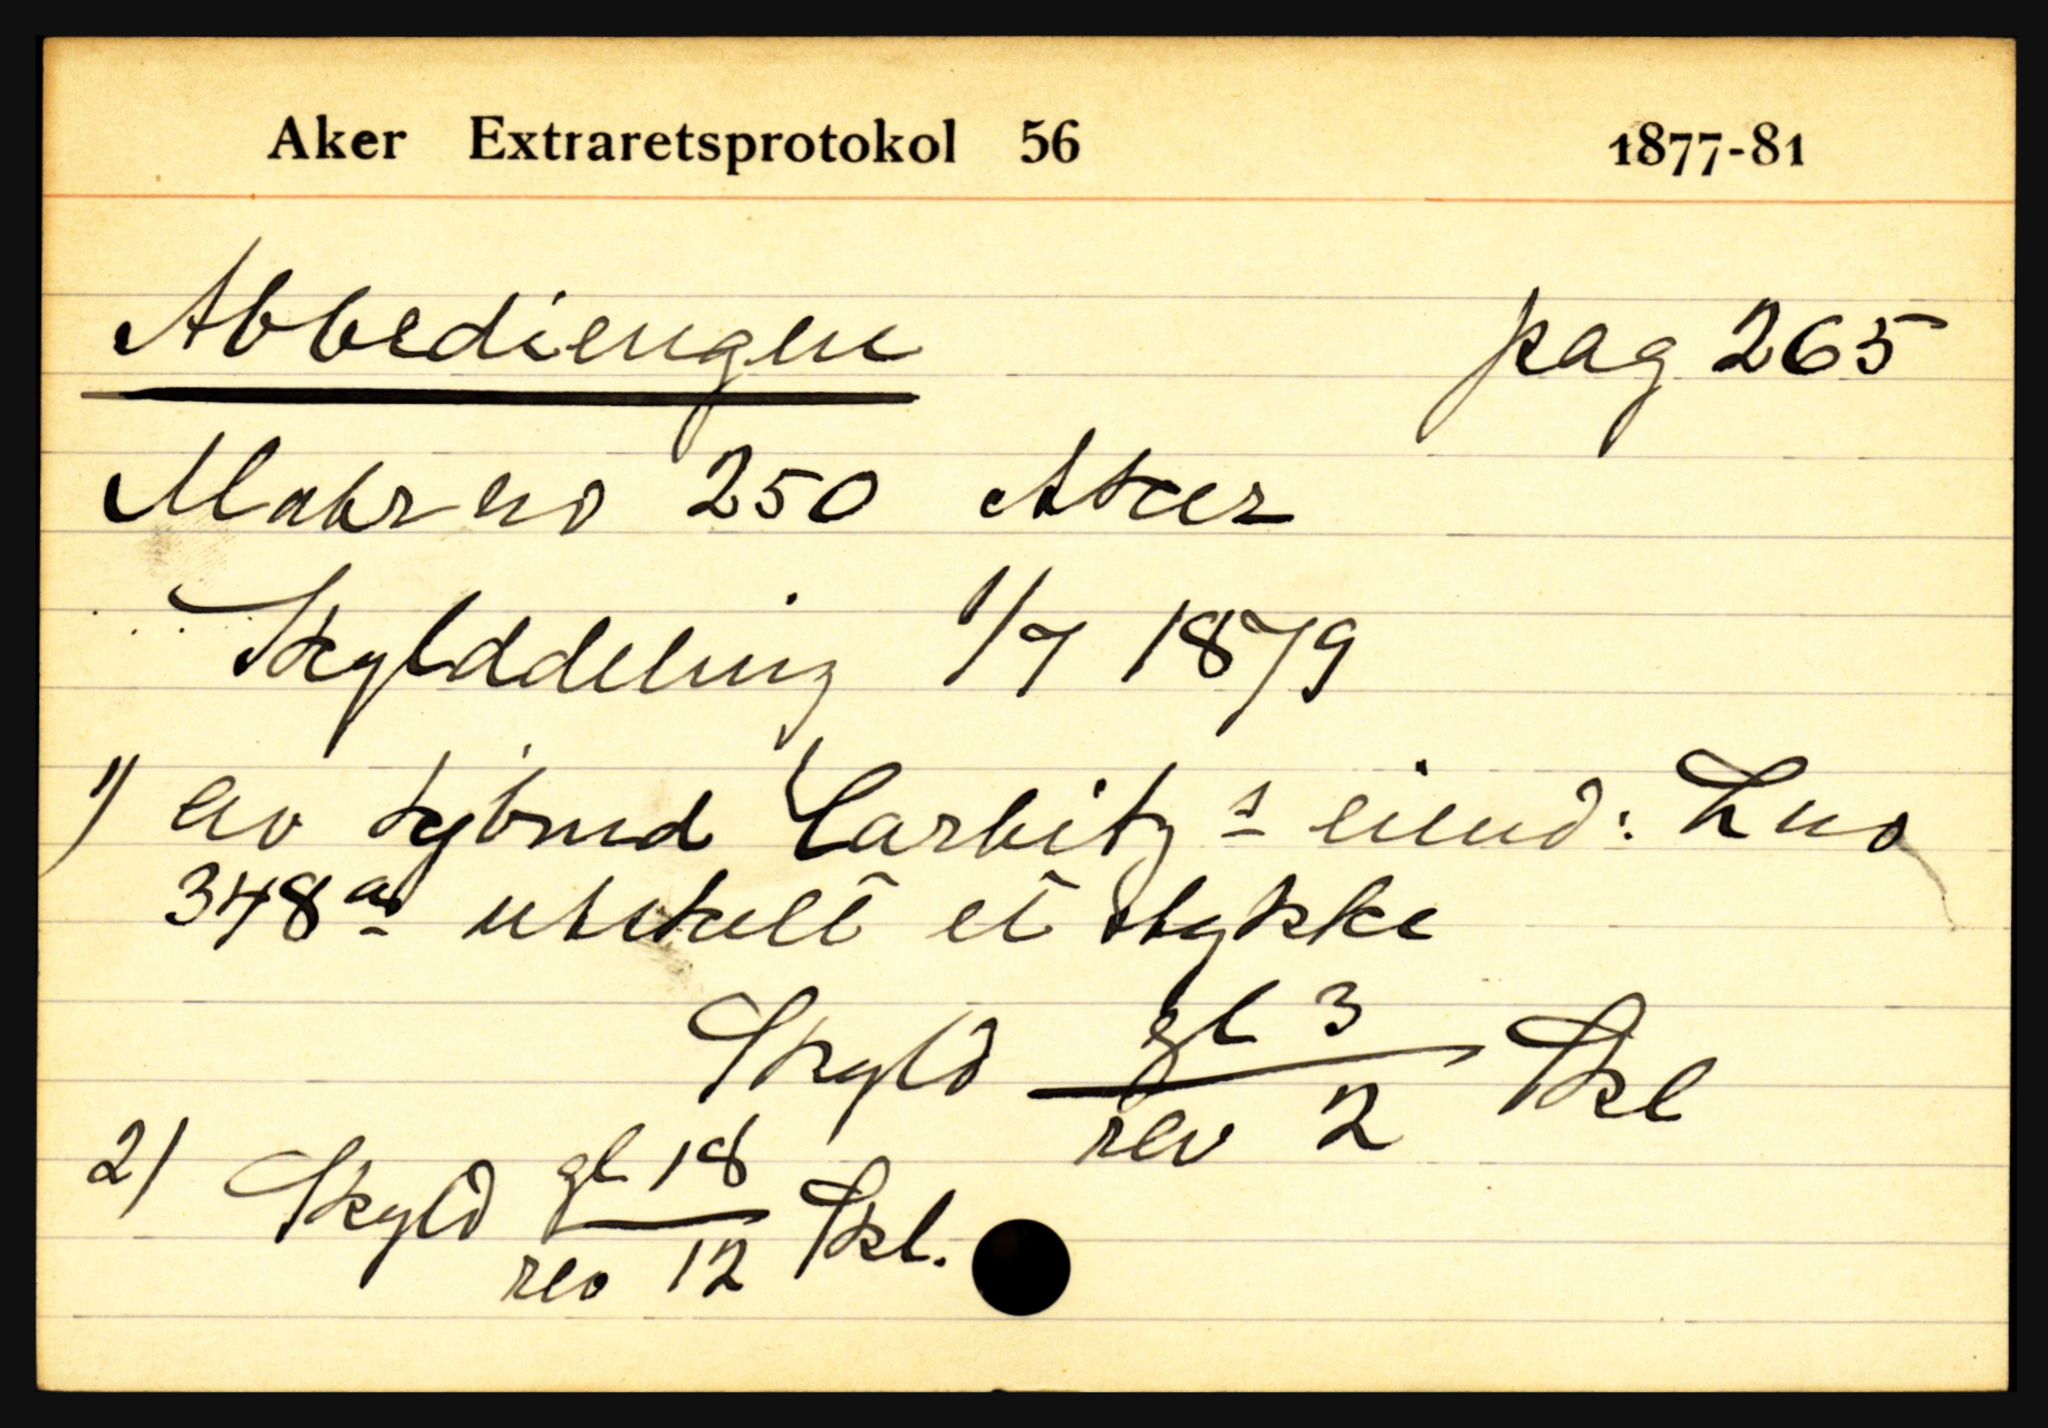 Aker Extraretsprotokol 56 1877-81
Abbediengen pag 265
Matr no 250 Aker
Skylddeling 1/7 1879
1) av kjbmd Carbitz's eiend: Lno
348a utskilt et stykke
Skyld gl 3 / rev 2 Skl
2) Skyld gl 18 / rev 12 Skl.